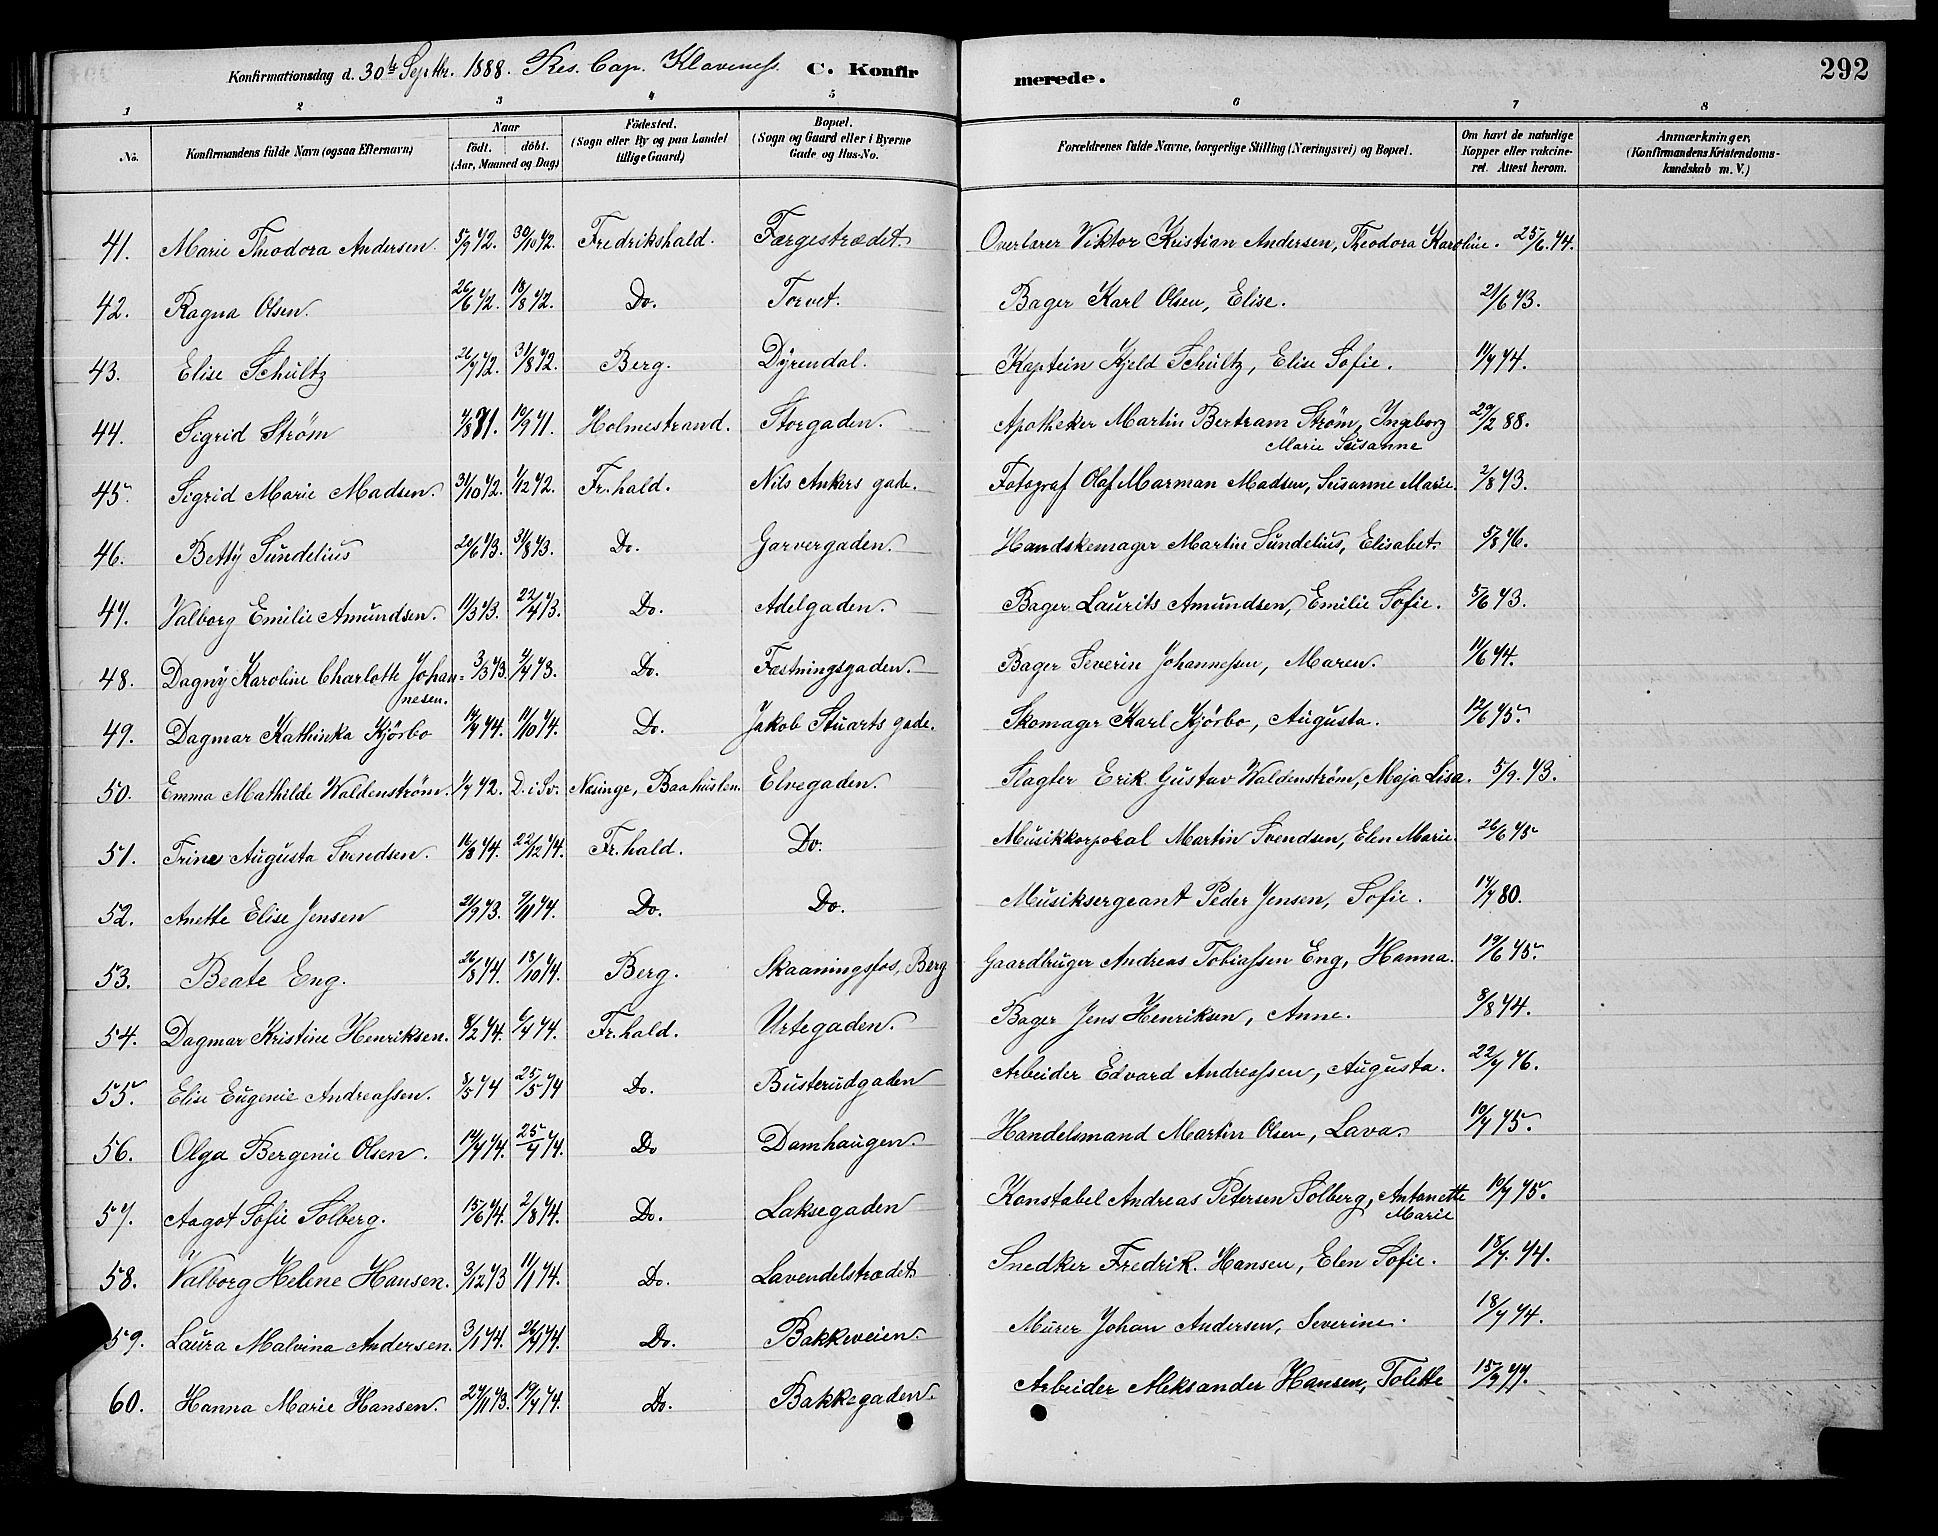 Konfirmationsdag d. 30te Septbr. 1888. Res. Cap. Klaveness. C. Konfir merede. 292
1 2 3 4 5 6 7 8
No. Konfirmandens fulde Navn (ogsaa Efternavn) Naar födt. döbt. (Aar, Maaned og Dag) Födested. (Sogn eller By og paa Landet tillige Gaard) Bopæl. (Sogn og Gaard eller i Byerne Gade og Hus-No. Forældrenes fulde Navne, borgerlige Stilling (Næringsvei) og Bopæl. Om havt de naturlige Kopper eller vakcineret. Attest herom. Anmærkninger, (Konfirmandens Kristendomskundskab m. V.)
41. Marie Theodora Andersen. 5/9 72. 30/10 72. Fredrikshald. Færgestrædet. Overlærer Viktor Kristian Andersen, Theodora Karoline. 25/6. 74.
42. Ragna Olsen. 26/6 72. 18/8 72. Do. Torvet. Bager Karl Olsen, Elise. 21/6 73.
43. Elise Schultz 26/7 72. 31/8 72. Berg. Dyrendal. Kaptein Kjeld Schultz, Elise Sofie. 11/7 74.
44. Sigrid Strøm 4/8 71. 10/9 71. Holmestrand. Storgaden. Apotheker Martin Bertram Strøm, Ingeborg 29/2 88.
Marie Susanne
45. Sigrid Marie Madsen. 31/10 72. 1/12 72. Fr.hald. Nils Ankers gade. Fotograf Olaf Marman Madsen, Susanne Marie. 2/8 73.
46. Betty Sundelius 20/6 73. 31/8 73. Do. Garvergaden. Handskemager Martin Sundelius, Elisabet. 5/8 76.
47. Valborg Emilie Amundsen. 11/3 73. 22/4 73. Do. Adelgaden. Bager Laurits Amundsen, Emilie Sofie. 5/6 73.
48. Dagny Karoline Charlotte Johan- 3/3 73. 9/4 73. Do. Fæstningsgaden. Bager Severin Johannessen, Maren. 11/6 74.
nesen.
49. Dagmar Kathinka Kjörbo 14/7 74. 11/10 74. Do. Jakob Stuarts gade. Skomager Karl Kjörbo, Augusta. 12/6 75.
50. Emma Mathilde Waldenström. 1/7 72. D. i Sv. Næsinge, Baahuslen. Elvegaden. Slagter Erik Gustav Waldenström, Maja Lisa. 5/9. 73.
51. Trine Augusta Svendsen. 16/8 74. 22/12 74. Fr.hald. Do. Musikkorporal Martin Svendsen, Elen Marie. 26/6 75
52. Anette Elise Jensen 21/9 73. 9/11 74. Do. Do. Musiksergeant Peder Jensen, Sofie. 14/7 80.
53. Beate Eng. 26/8 74. 18/10 74. Berg. Skaaningsfos, Berg Gaardbruger Andreas Tobiassen Eng, Hanna. 19/6 75.
54. Dagmar Kristine Henriksen. 8/2 74. 6/4 74. Fr.hald. Urtegaden. Bager Jens Henriksen, Anne. 8/8 74.
55. Elise Eugenie Andreassen. 8/5 74 25/5 74 Do. Busterudgaden Arbeider Edvard Andreassen, Augusta. 22/7 76.
56. Olga Bergenie Olsen. 14/4 74. 25/7 74. Do Damhaugen. Handelsmand Martin Olsen, Lava. 10/7 75.
57. Aagot Sofie Solberg. 15/6 74. 2/8 74. Do. Laksegaden Konstabel Andreas Petersen Solberg, Antonette 10/7 75.
Marie
58. Valborg Helene Hansen. 3/12 73 11/1 74. Do. Lavendelstrædet Snedker Fredrik Hansen, Elen Sofie. 18/7. 74.
59. Laura Malvina Andersen. 3/1 74. 26/4 74. Do. Bakkeveien. Murer Johan Andersen, Severine. 18/7 74.
60. Hanna Marie Hansen. 27/11 73. 19/4 74. Do. Bakkegaden. Arbeider Aleksander Hansen, Tolette 15/9 77.